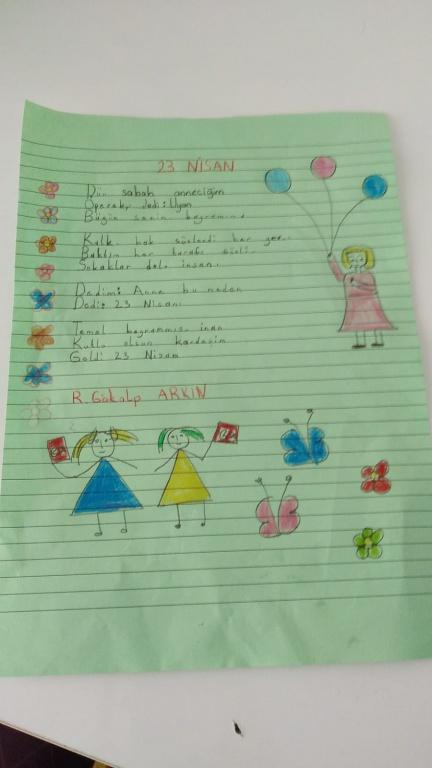 23 NİSAN
Dün sabah anneciğim
Öperek, dedi: Uyan
Bugün senin bayramın
Kalk bak süslendi her yer.
Baktım her taraf süslü
Sokaklar dolu insan.
Dedim: Anne bu neden
Dedi: 23 Nisan:
Temel bayramımız inan
Kutlu olsun kardeşim
Geldi 23 Nisan
R. Gökalp ARKIN